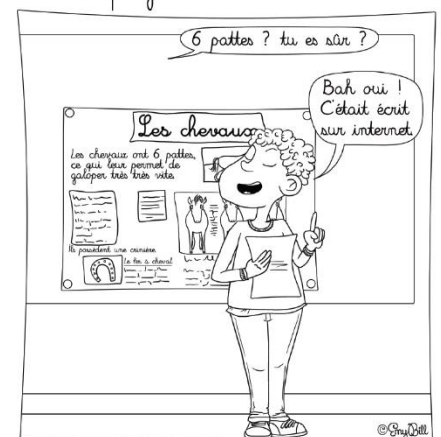 6 pattes ? tu es sûr ?
Bah oui !
C'était écrit
sur internet
Les chevaux
Les chevaux ont 6 pattes,
ce qui leur permet de
galoper très très vite
Ils possèdent une crinière
le fer à cheval